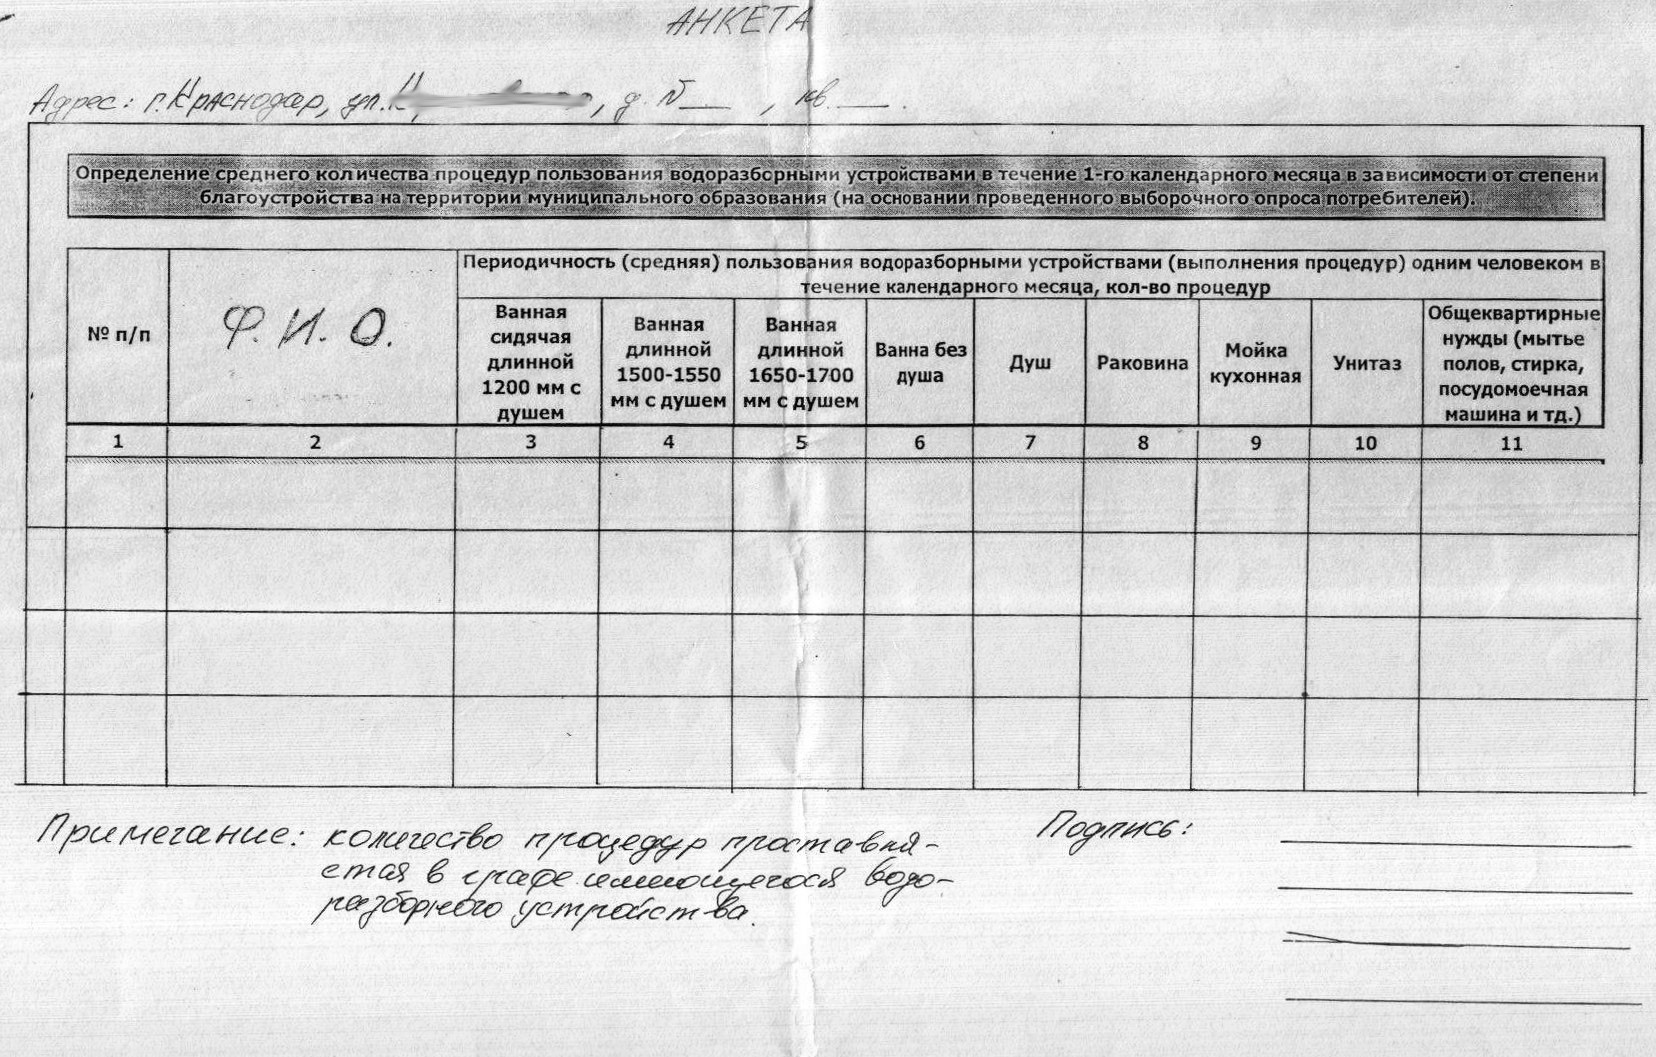 АНКЕТА
Адрес: г. Краснодар, ул. , д. № , кв. .
Определение среднего количества процедур пользования водоразборными устройствами в течение 1-го календарного месяца в зависимости от степени
благоустройства на территории муниципального образования (на основании проведенного выборочного опроса потребителей).
№ п/п
Ф. И. О.
Периодичность (средняя) пользования водоразборными устройствами (выполнения процедур) одним человеком в
течение календарного месяца, кол-во процедур
Ванная
сидячая
длинной
1200 мм с
душем
Ванная
длинной
1500-1550
мм с душем
Ванная
длинной
1650-1700
мм с душем
Ванна без
душа
Душ
Раковина
Мойка
кухонная
Унитаз
Общеквартирные
нужды (мытье
полов, стирка,
посудомоечная
машина и тд.)
1 2 3 4 5 6 7 8 9 10 11
Примечание: количество процедур проставля-
ется в графе имеющегося водо-
разборного устройства.
Подпись: